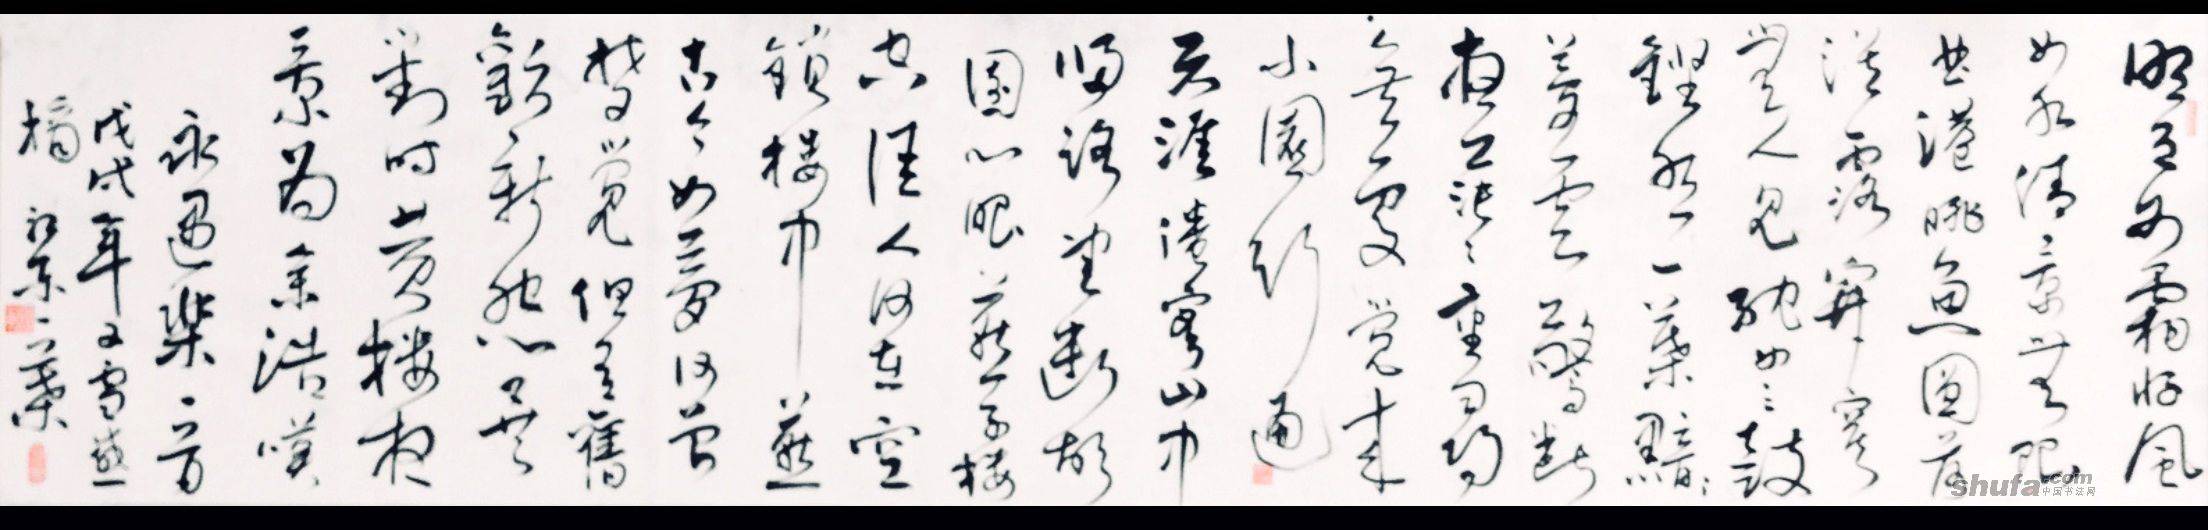 明月如霜好風
如水清景無限
曲港跳魚圓荷
瀉露寂寞
無人見紞如三鼓
鏗然一葉黯黯
夢雲驚斷
夜茫茫重尋
無處覺來
小園行遍
天涯倦客山中
歸路望斷故
園心眼燕子樓
空佳人何在空
鎖樓中燕
古今如夢何曾
夢覺但有舊
歡新怨異
對时黃樓夜
景為余浩嘆
永遇樂一首
戊戌年
一葉
shufa.com
中国书法网